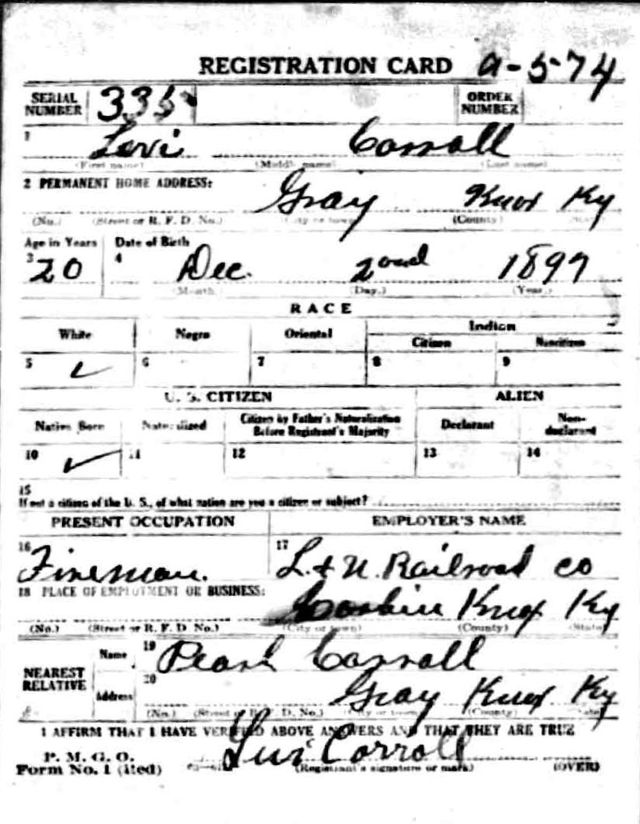 REGISTRATION CARD 9-5-74
SERIAL NUMBER 335 ORDER NUMBER
1 Levi Carroll
(First name) (Middle name) (Last name)
2 PERMANENT HOME ADDRESS: Gray Knox Ky
(No.) (Street or R. F. D. No.) (City or town) (County) (State)
Age in Years Date of Birth
3 20 4 Dec. 2ond 1897
(Month.) (Day.) (Year.)
RACE
White Negro Oriental Indian
Citizen Noncitizen
5 ✓ 6 7 8 9
U. S. CITIZEN ALIEN
Native Born Naturalized Citizen by Father's Naturalization Before Registrant's Majority Declarant Non-declarant
10 ✓ 11 12 13 14
15
If not a citizen of the U. S., of what nation are you a citizen or subject?
PRESENT OCCUPATION EMPLOYER'S NAME
16 Fireman. 17 L. & N. Railroad Co
18 PLACE OF EMPLOYMENT OR BUSINESS:
Corbin Knox Ky
(No.) (Street or R. F. D. No.) (City or town) (County) (State)
NEAREST RELATIVE Name 19 Pearl Carroll
Address 20 Gray Knox Ky
(No.) (Street or R. F. D. No.) (City or town) (County) (State)
I AFFIRM THAT I HAVE VERIFIED ABOVE ANSWERS AND THAT THEY ARE TRUE
P. M. G. O.
Form No. 1 (Red) Levi Carroll
(Registrant's signature or mark) (OVER)